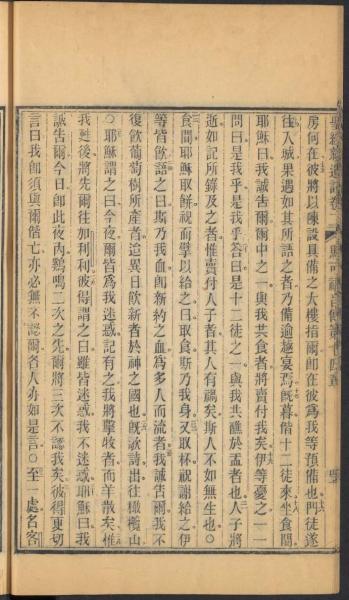 房何在彼將以陳設具備之大樓指爾即在彼為我等預備也門徒遂
往入城果遇如其所語之者乃備逾越宴焉旣暮偕十二徒來坐食間
耶穌曰我誠告爾爾中之一與我共食者將賣付我矣伊等憂之一一
問曰是我乎是我乎答曰是十二徒之一與我共醮於盂者也人子將
逝如記所錄及之者惟賣付人子者其人有禍矣斯人不如無生也○
食間耶穌取餅祝而擘以給之曰取食斯乃我身又取杯祝謝給之伊
等皆飲語之曰斯乃我血即新約之血為多人而流者我誠告爾我不
復飲葡萄樹所產者迨異日飲新者於神之國也旣歌詩出往橄欖山
○耶穌謂之曰今夜爾皆為我迷惑記有之我將擊牧者而羊散矣惟
我甦後將先爾往加利利彼得謂之曰雖皆迷惑我不迷惑耶穌曰我
誠告爾今日即此夜內鷄鳴二次之先爾將三次不認我矣彼得更切
言曰我即須與爾偕亡亦必無不認爾各人亦如是言○至一處名客